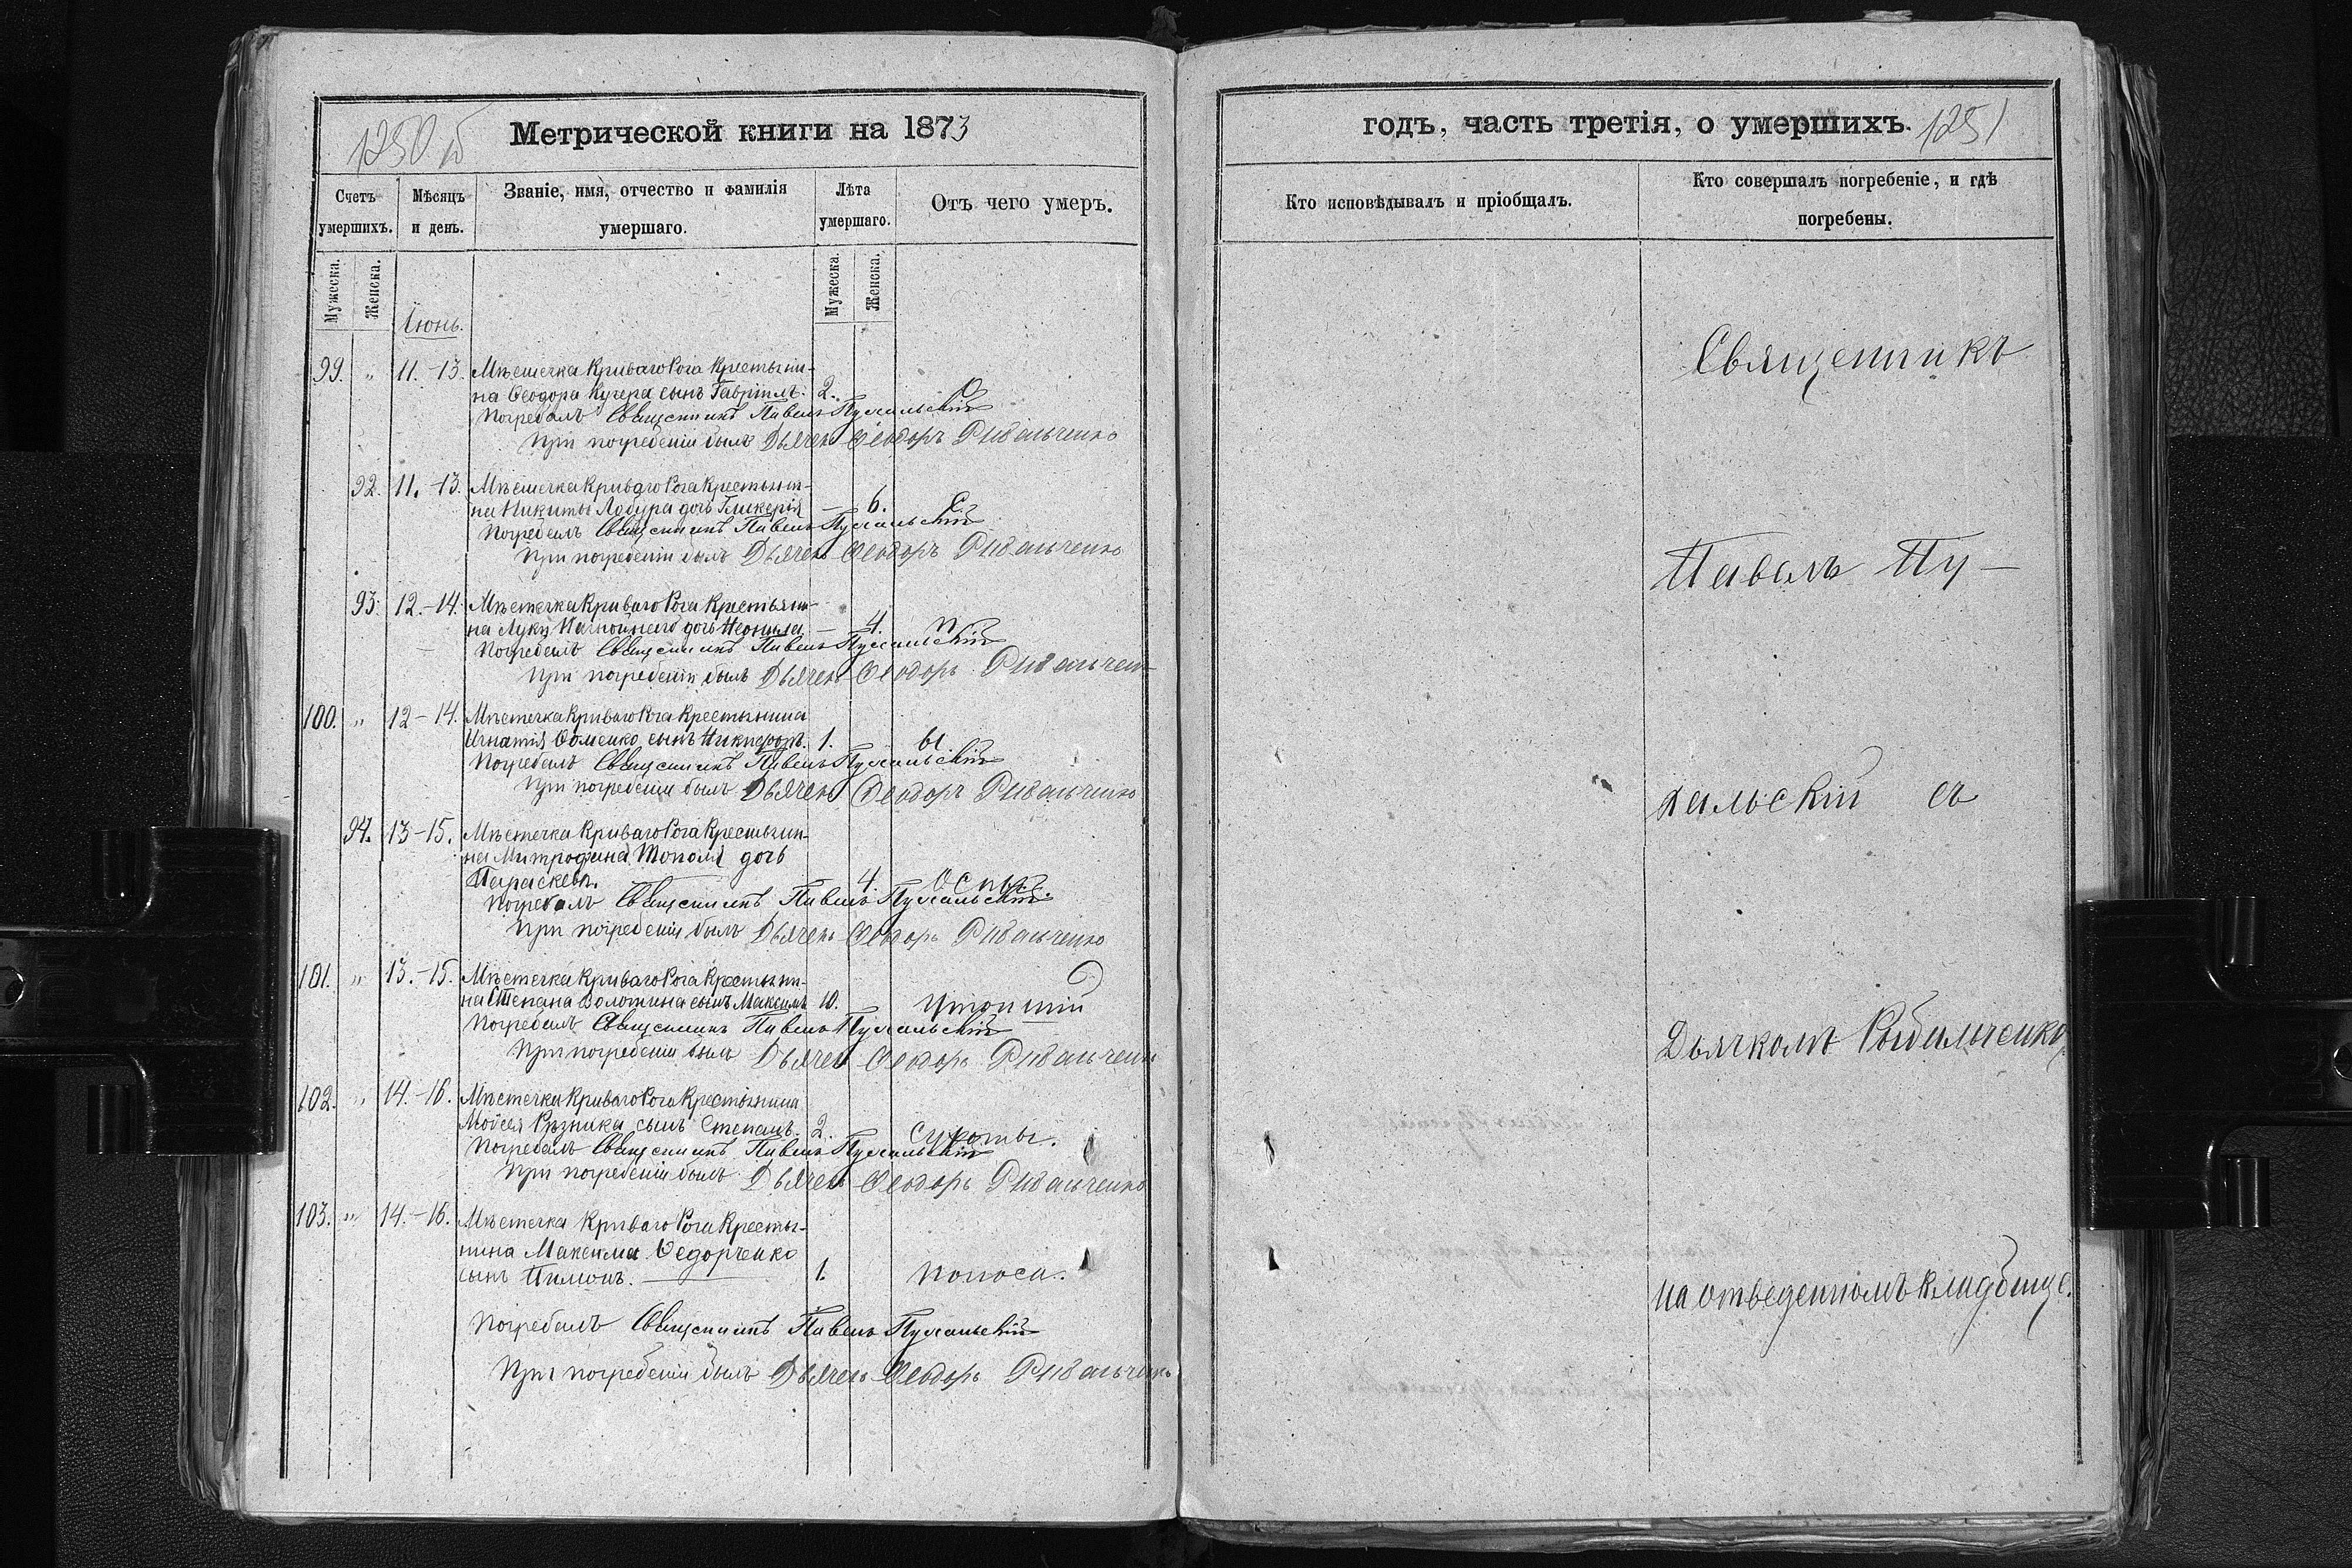 1250 об
Метрической книги на 1873
Счетъ умершихъ.
Мѣсяцъ и день.
Званіе, имя, отчество и фамилія умершаго.
Лѣта умершаго.
Отъ чего умеръ.
Мужеска.
Женска.
Мужеска.
Женска.
Іюнь.
99. " 11.-13. Мѣстечка Криваго Рога Крестьяни-
на Ѳеодора Кучера сынъ Гавріилъ. 2. О
Погребалъ Священникъ Павелъ Пухальскій
При погребеніи былъ Дьячекъ Ѳеодоръ Рыбальченко
92. 11.-13. Мѣстечка Криваго Рога Крестьяни-
на Никиты Лобура дочь Гликерія – 6. С
Погребалъ Священникъ Павелъ Пухальскій
При погребеніи былъ Дьячекъ Ѳеодоръ Рыбальченко
93. 12.-14. Мѣстечка Криваго Рога Крестьяни-
на Луки дочь Неонила – 4. п
Погребалъ Священникъ Павелъ Пухальскій
При погребеніи былъ Дьячекъ Ѳеодоръ Рыбальченко
100. " 12-14. Мѣстечка Криваго Рога Крестьянина
Игнатія Ѳоменко сынъ Никифоръ. 1. ы.
Погребалъ Священникъ Павелъ Пухальскій
При погребеніи былъ Дьячекъ Ѳеодоръ Рыбальченко
94. 13-15. Мѣстечка Криваго Рога Крестьяни-
на Митрофана Тополя дочь
Параскева. 4. Оспы.
Погребалъ Священникъ Павелъ Пухальскій.
При погребеніи былъ Дьячекъ Ѳеодоръ Рыбальченко
101. " 13.-15. Мѣстечка Криваго Рога Крестьяни-
на Степана Золотина сынъ Максимъ 10. Утопшій
Погребалъ Священникъ Павелъ Пухальскій
При погребеніи былъ Дьячекъ Ѳеодоръ Рыбальченко
102. " 14.-16. Мѣстечка Криваго Рога Крестьянина
Моѵсея Рѣзника сынъ Степанъ. 2. Сухоты.
Погребалъ Священникъ Павелъ Пухальскій
При погребеніи былъ Дьячекъ Ѳеодоръ Рыбальченко
103. " 14.-16. Мѣстечка Криваго Рога Крестья-
нина Максима Ѳедорченко
сынъ Пимонъ. 1. Поноса.
Погребалъ Священникъ Павелъ Пухальскій
При погребеніи былъ Дьячекъ Ѳеодоръ Рыбальченко
годъ, часть третія, о умершихъ. 1251
Кто исповѣдывалъ и пріобщалъ.
Кто совершалъ погребеніе, и гдѣ
погребены.
Священникъ
Павелъ Пу-
хальскій съ
Дьячкомъ Рыбальченко,
на отведенномъ кладбище.